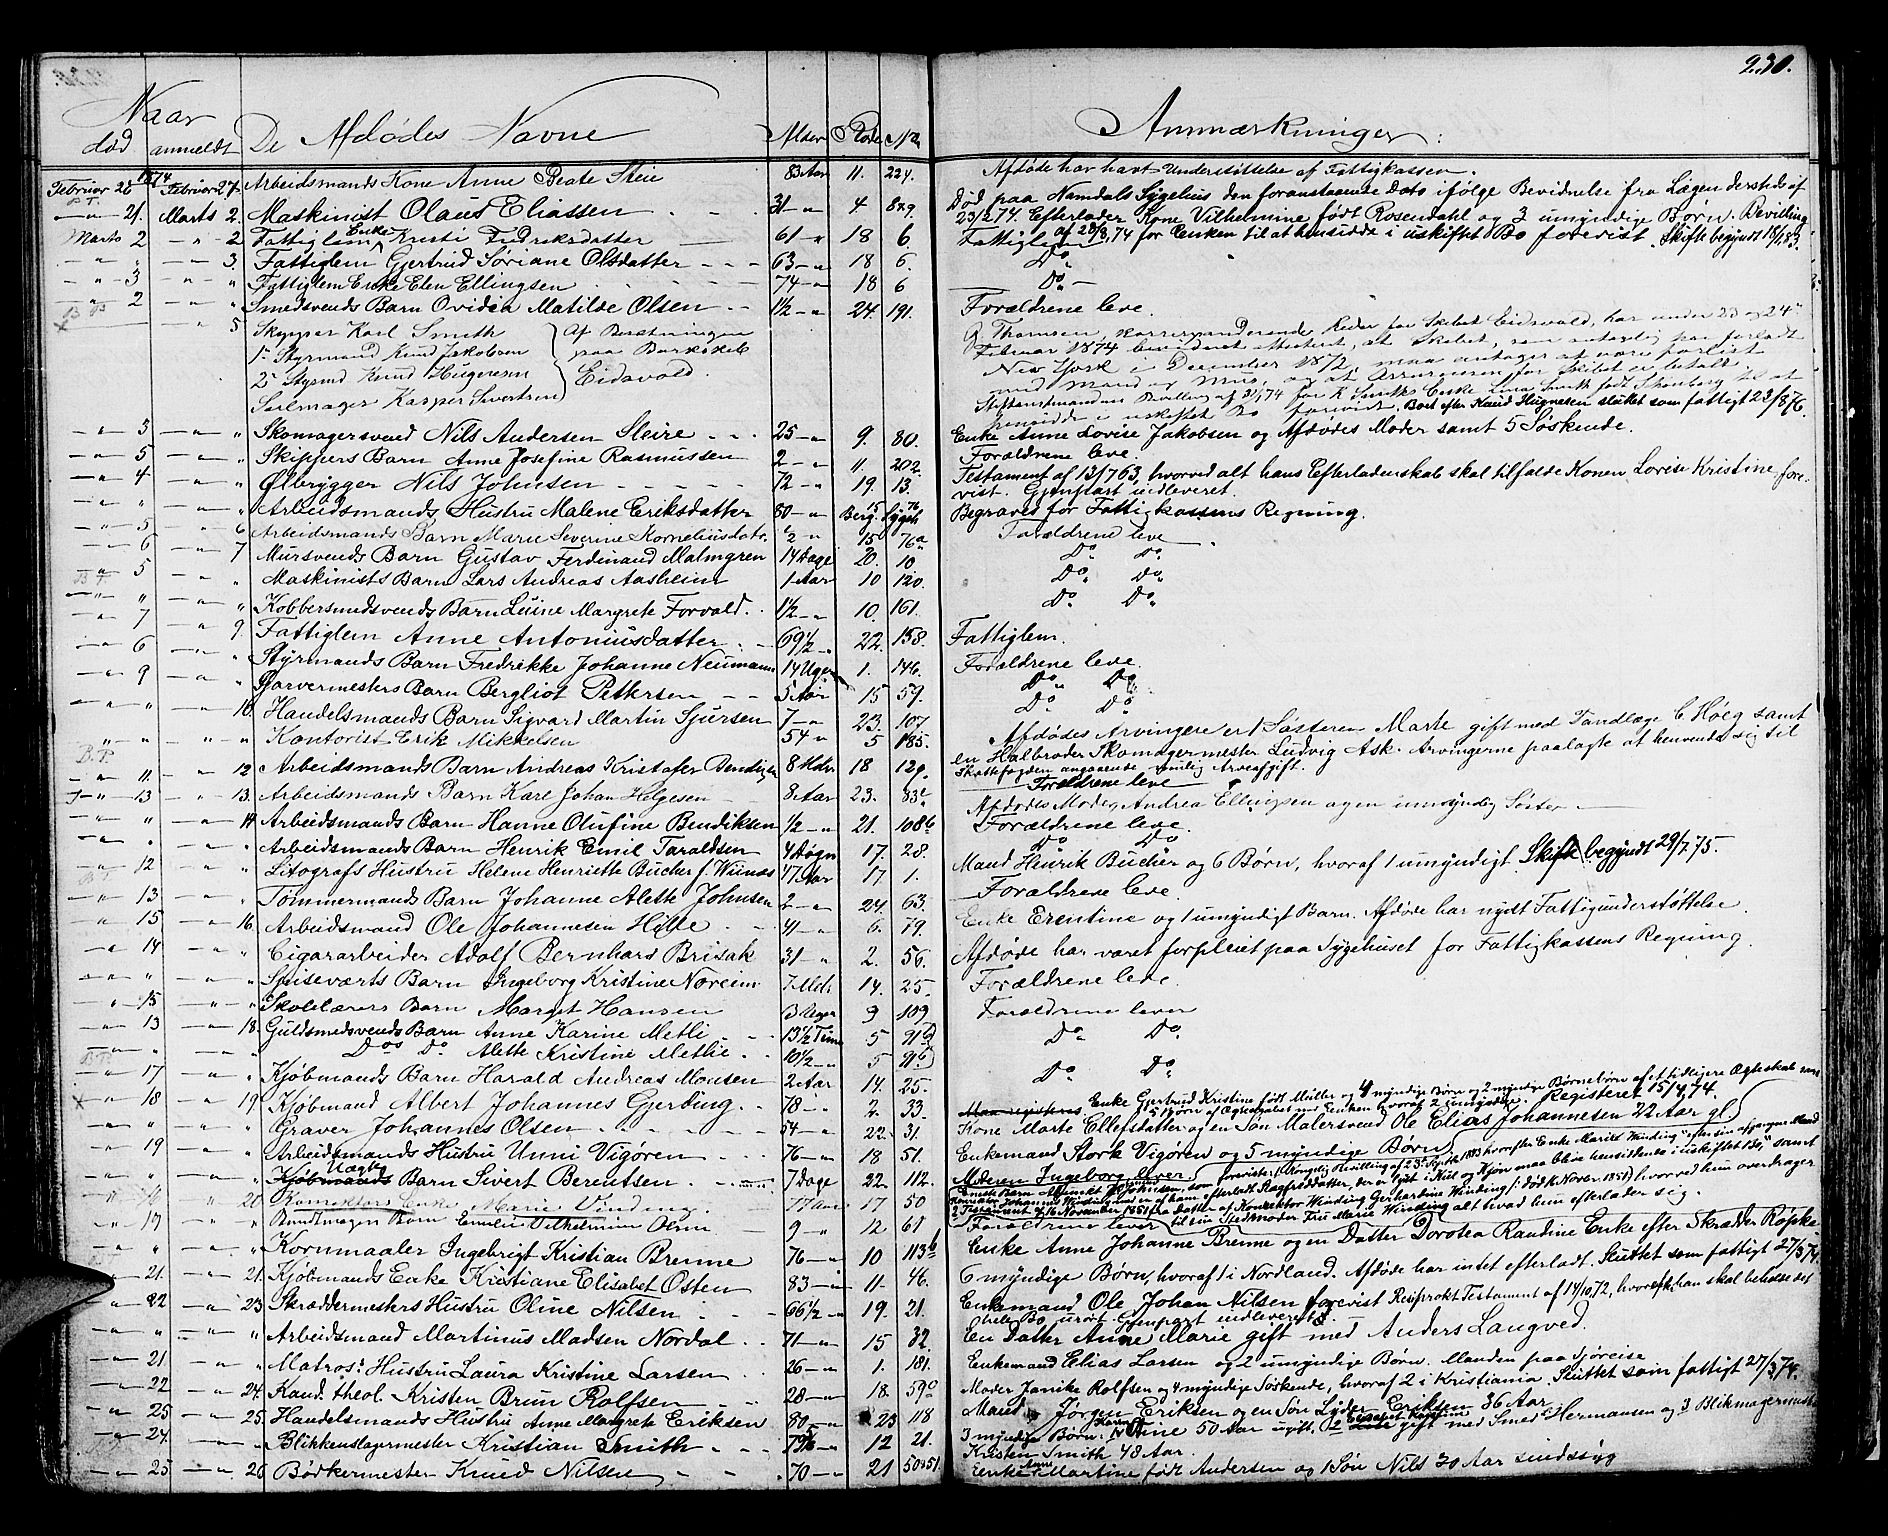 230.
Naar
De Afdødes Navne Alder Rode No Anmærkninger.
død anmeldt
1874
Februar 26 Februar 27. Arbeidsmands Kone Anne Beate Steie 83 Aar 11. 224. Afdøde har havt Understøttelse af Fattigkassen.
21. Marts 2. Maskinist Olaus Eliassen 31 4 Død paa Namdals Sygehus den foranstaaende Dato ifølge Bevidnelse fra Lægen dersteds af
23/2 74. Efterlader Kone Vilhelmine født Rosendahl og 3 umyndige Børn. Bevilling
Marts 2 2 Fattiglem Enke Kristi Fredriksdatter 61 18 6. Fattiglem for Enken til at hensidde i uskiftet Bo forevist. Skifte begyndt
3. Fattiglem Gjertrud Søriane Olsdatter 63 18 6. Do
3 Fattiglem Enke Elen Ellingsen 74 18 6 Do
2 Smedsvends Barn Ovidia Matilde Olsen 1½ 24. 191. Forældrene leve.
5 Skipper Karl Smith Af Besætningen paa Barkskib Eidsvold.
1e Styrmand Knud Jakobsen
2e Styrmd Knud Hugnesen
Seilmager Kasper Sivertsen
Thomsen, korresponderende Reder for Skibet Eidsvold, har under 23 og 24
Februar 1874 attesteret, at Skibet, som
New York i December 1872, maa antages at være forlist
med Mand og Mus,
Boet efter Knud Hugnesen sluttet som fattigt 23/8 76.
5 Skomagersvend Nils Andersen Sleire 25 9. 80. Enke Anne Lovise Jakobsen og Afdødes Moder samt 5 Søskende.
5 Skippers Barn Anne Josefine Rasmussen 2 11. 202. Forældrene leve.
4 Ølbrygger Nils Johnsen 72 19. 13. Testament af 13/7 63, hvorved alt hans Efterladenskab skal tilfalde Konen Lovise Kristine, fore-
vist. Gjenpart udleveret.
Arbeidsmands Hustru Malene Eriksdatter 80 Berg. Sygeh Begravet for Fattigkassens Regning.
5 6. Arbeidsmands Barn Marie Severine Korneliusdatr. 2 15 76a Forældrene leve
6 7 Mursvends Barn Gustav Ferdinand Malmgren 14 Dage 20. 10 Do Do
5 Maskinists Barn Lars Andreas Aasheim 1 Aar 10 120. Do Do
Kobbersmedsvends Barn Luine Margrete Forvald. 1½ 10. 161. Do Do
7 9. Fattiglem Anne Antoniusdatter 69½ 22. 158. Fattiglem.
6 Styrmands Barn Fredrikke Johanne Neumann 14 Uger 1. 146. Forældrene leve.
9 Garvermesters Barn Bergliot Pettersen 5 Aar 15 59. Do Do
10. Handelsmands Barn Sigvard Martin Sjursen 7 23. 107. Do Do
Kontorist Erik Mikkelsen 54 5 185. Afdødes Arvinger er 1 Søster Marte gift med Tandlæge C. Høeg samt
en Halbroder Skomagermester Ludvig Ask. Arvingerne paalagte at henvende sig til
Skattefogden angaaende mulig Arveafgift.
11. 12 Arbeidsmands Barn Andreas Kristofer Bendigsen 8 Mdr 18 129. Forældrene leve
13 13. Arbeidsmands Barn Karl Johan Helgesen 8 Aar 23. 83c Afdødes Moder Andrea Ellingsen og en umyndig Søster
14. Arbeidsmands Barn Hanne Olufine Bendiksen ½ 21. 108b Forældrene leve.
Arbeidsmands Barn Henrik Emil Taraldsen 4 Døgn 17. 28. Do Do
12 Litografs Hustru Helene Henriette Bucher f. Wiinas 47 Aar 17 1. Mand Henrik Bucher og 6 Børn, hvoraf 1 umyndigt. Skifte begyndt 29/7. 75.
13 Tømmermands Barn Johanne Alette Johnsen 2 24. 63. Forældrene leve.
15 16. Arbeidsmand Ole Johannesen Hille 41 6. 79. Enke Erentine og 1 umyndigt Barn. Afdøde har nydt Fattigunderstøttelse.
14 Cigararbeider Adolf Bernhard Brisak 31 2. 56. Afdøde har været forpleiet paa Sygehuset for Fattigkassens Regning.
Spiseværts Barn Ingeborg Kristine Noreim 7 Mdr. 14. 25. Forældrene leve.
15 Skolelærers Barn Marget Hansen 3 Uger 9 109 Forældrene lever
13 18. Guldsmedsvends Barn Anne Karine Metli 13½ Time 5 91 Do Do
Do Do Alette Kristine Metlie 10½ 5 91 Do Do
17 Kjøbmands Barn Harald Andreas Monsen 2 Aar 14. 25. Do Do
18 19. Kjøbmand Albert Johannes Gjerding. 78 2. 33. Enke Gertrud Kristine født Müller og 4 myndige Børn og 2 myndige Børnebørn af et tidligere Ægteskab samt
5 Børn af Ægteskabet med Enken hvoraf 2 umyndige. Registeret 15/4 74.
Graver Johannes Olsen 54 22. 31. Kone Marte Ellefsdatter og en Søn Malersvend Ole Elias Johannesen 22 Aar gl.
19 Arbeidsmands Hustru Unni Vigøren 76 18 51. Enkemand Stork Vigøren og 5 myndige Børn
Uægte Barn Sivert Berentsen 7 Dage 22. 112. Moderen Ingeborg lever
20. Konrektors Enke Marie Vinding. 77 Aar 17 50
17 Bundtmagers Barn Emilie Vilhelmine Olsen 9 12 61 Forældrene lever
Kornmaaler Ingebrigt Kristian Brenne 76 10 113b Enke Anne Johanne Brenne og en Datter Dorotea Randine Enke efter Skrædder Røpke
21. 21. Kjøbmands Enke Kristiane Elisabet Osten 83 11. 46. 6 myndige Børn, hvoraf 1 i Nordland. Afdøde har intet efterladt. Sluttet som fattigt 27/3 74.
22 23. Skræddermesters Hustru Oline Nilsen 66½ 19. 21. Enkemand Ole Johan Nilsen forevist Resiprokt Testament af 14/10. 72, hvorefter han skal beholde det
hele Bo urørt. Gjenpart udleveret.
Arbeidsmand Martinus Madsen Nordal 71 15 32. En Datter Anne Marie gift med Anders Langved.
21 Matros. Hustru Laura Kristine Larsen 26 1. 181. Enkemand Elias Larsen og 2 umyndige Børn. Manden paa Sjøreise.
22 24. Kand. theol. Kristen Brun Rolfsen 28 18. 59 Moder Janike Rolfsen og 4 myndige Søskende, hvoraf 2 i Kristiania. Sluttet som fattigt 27/3 74.
25 25. Handelsmands Hustru Anne Margrete Eriksen 80 23 118 Mand Jørgen Eriksen og en Søn Lyder Eriksen 36 Aar
24. Blikkenslagermester Kristian Smith 79 12 21. 3 myndige Børn: 50 Aar ugift. gift med Smed Hermansen og 3 Blikmagermester
Kristen Smith 48 Aar.
25 26 Bødkermester Knud Nilsen 70 21 50 51. Enke Martine født Andersen og 1 Søn Nils 30 Aar sindssyg